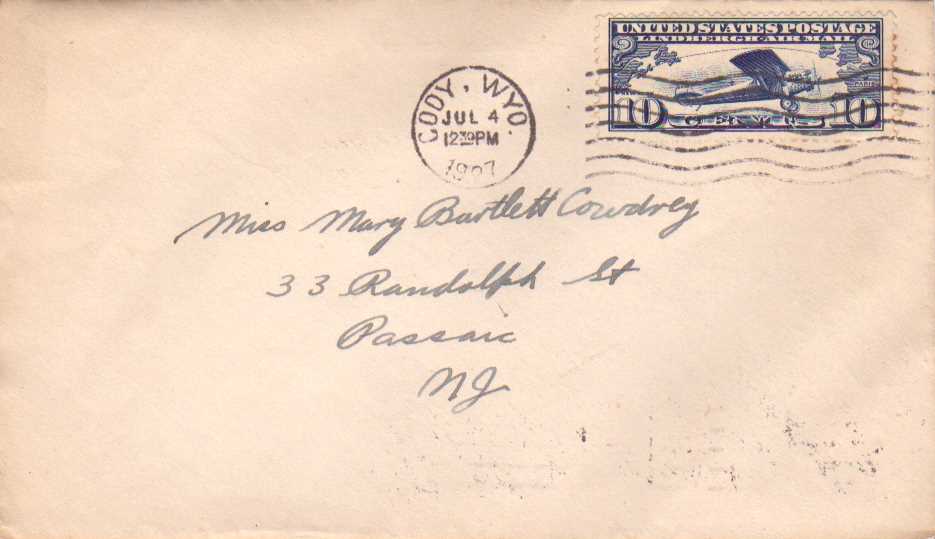 UNITED STATES POSTAGE
LINDBERGH AIR MAIL
PARIS
10 10
CODY, WYO.
JUL 4
12 30 PM
Miss Mary Bartlett Cowdrey
33 Randolph St
Passaic
NJ